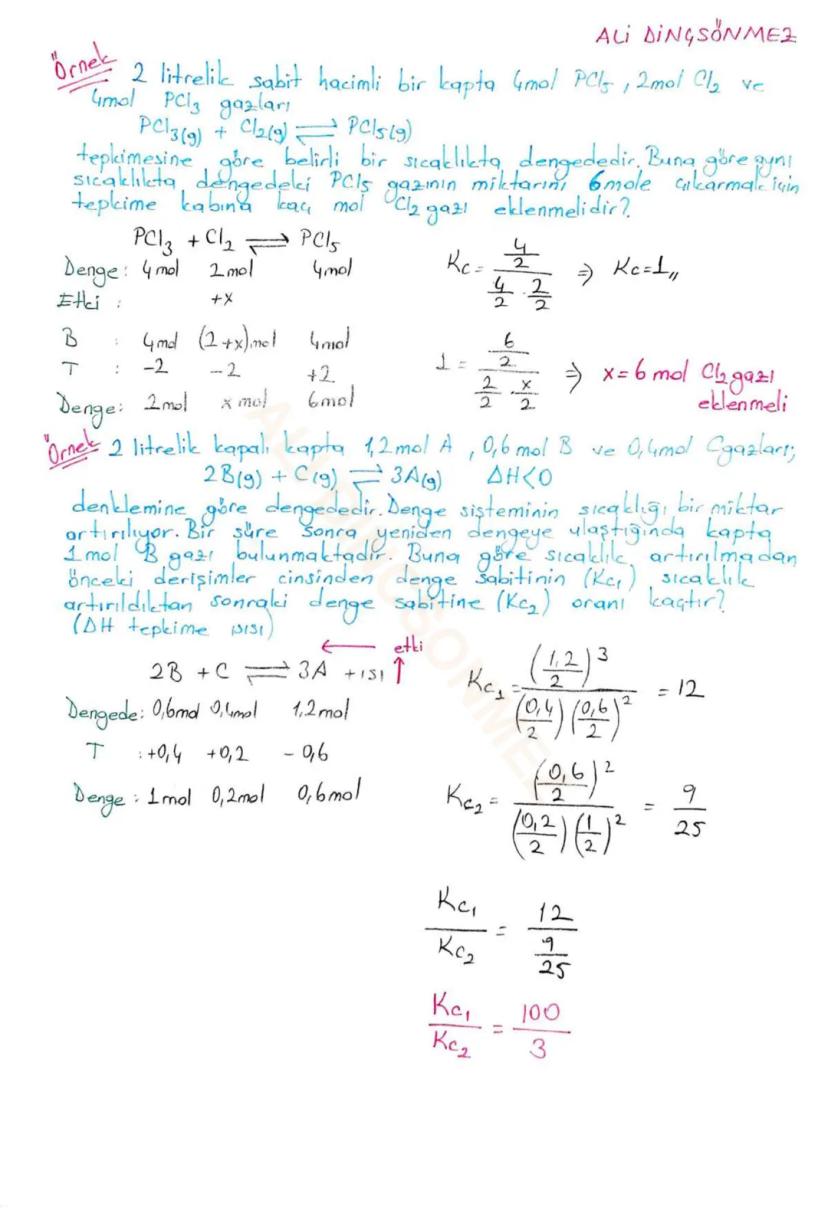 ALİ DİNÇSÖNMEZ
Örnek 2 litrelik sabit hacimli bir kapta 4mol PCl5, 2mol Cl2 ve
4mol PCl3 gazları
PCl3(g) + Cl2(g) ⇌ PCl5(g)
tepkimesine göre belirli bir sıcaklıkta dengededir. Buna göre aynı
sıcaklıkta dengedeki PCl5 gazının miktarını 6mole çıkarmak için
tepkime kabına kaç mol Cl2 gazı eklenmelidir?
PCl3 + Cl2 ⇌ PCl5
Denge: 4mol 2mol 4mol
Etki : +x
B : 4mol (2+x)mol 4mol
T : -2 -2 +2
Denge: 2mol x mol 6mol
Kc = (4/2) / (4/2 · 2/2) ⇒ Kc=1,,
1 = (6/2) / (2/2 · x/2) ⇒ x=6 mol Cl2 gazı
eklenmeli
Örnek 2 litrelik kapalı kapta 1,2mol A, 0,6mol B ve 0,4mol C gazları;
2B(g) + C(g) ⇌ 3A(g) ΔH<0
denklemine göre dengededir. Denge sisteminin sıcaklığı bir miktar
artırılıyor. Bir süre sonra yeniden dengeye ulaştığında kapta
1mol B gazı bulunmaktadır. Buna göre sıcaklık artırılmadan
önceki derişimler cinsinden denge sabitinin (Kc1) sıcaklık
artırıldıktan sonraki denge sabitine (Kc2) oranı kaçtır?
(ΔH tepkime ısısı)
← etki
2B + C ⇌ 3A + ısı ↑
Dengede: 0,6mol 0,4mol 1,2mol
T : +0,4 +0,2 - 0,6
Denge : 1mol 0,2mol 0,6mol
Kc1 = (1,2/2)^3 / (0,4/2)(0,6/2)^2 = 12
Kc2 = (0,6/2)^2 / (0,2/2)(1/2)^2 = 9/25
Kc1/Kc2 = 12 / (9/25)
Kc1/Kc2 = 100/3
ALİ DİNÇSÖNMEZ